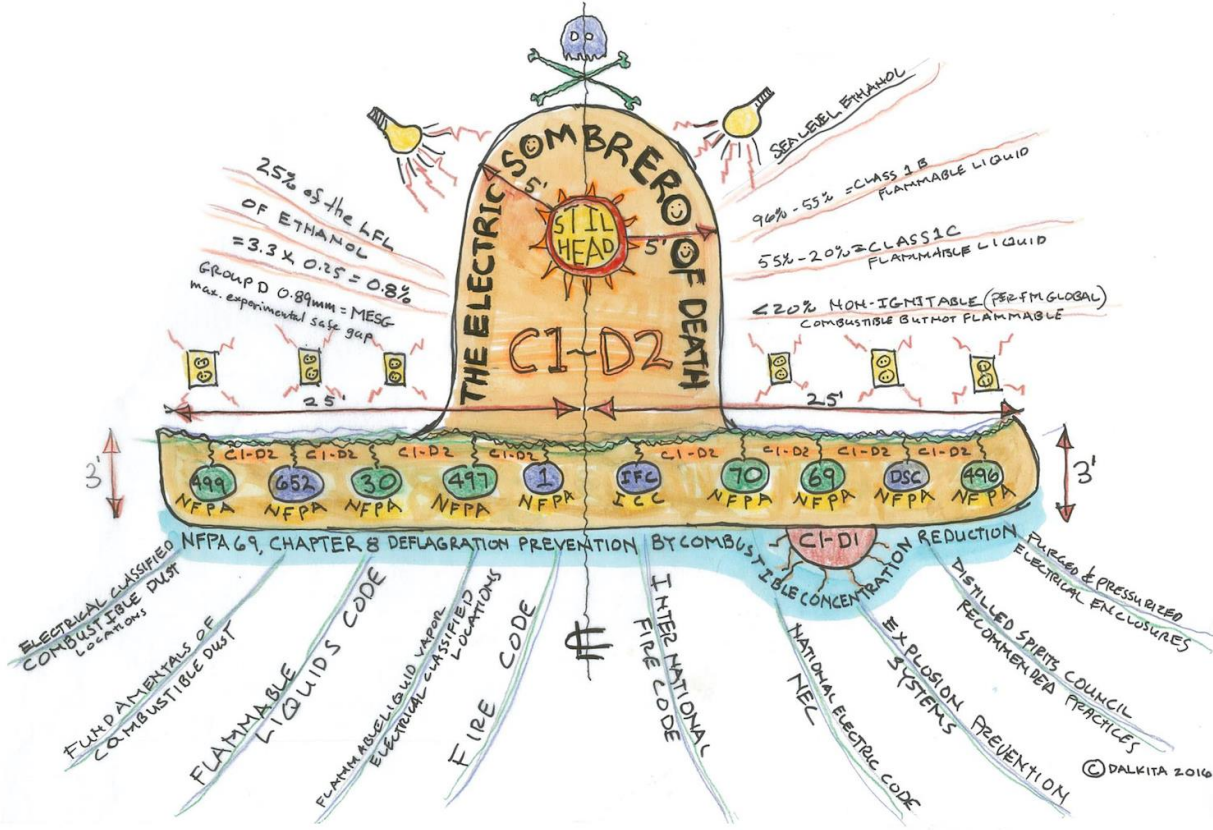 THE ELECTRIC SOMBRERO OF DEATH
5'
STIL
HEAD
5'
C1-D2
25% of the LFL
OF ETHANOL
= 3.3 x 0.25 = 0.8%
GROUP D 0.89mm = MESG
max. experimental safe
gap
SEA LEVEL ETHANOL
96% - 55% = CLASS 1 B
FLAMMABLE LIQUID
55% - 20% = CLASS 1 C
FLAMMABLE LIQUID
<20% NON-IGNITABLE (PER FM GLOBAL)
COMBUSTIBLE BUT NOT FLAMMABLE
25'
25'
3'
3'
C1-D2 C1-D2 C1-D2 C1-D2 C1-D2 C1-D2 C1-D2 C1-D2
499
NFPA
652
NFPA
30
NFPA
497
NFPA
1
NFPA
IFC
ICC
70
NFPA
69
NFPA
DSC
NFPA
496
NFPA
C1-D1
NFPA 69, CHAPTER 8 DEFLAGRATION PREVENTION BY COMBUSTIBLE CONCENTRATION REDUCTION
ELECTRICAL CLASSIFIED
COMBUSTIBLE DUST
LOCATIONS
FUNDAMENTALS OF
COMBUSTIBLE DUST
FLAMMABLE
LIQUIDS CODE
FLAMMABLE LIQUID VAPOR
ELECTRICAL CLASSIFIED
LOCATIONS
FIRE CODE
INTERNATIONAL
FIRE CODE
NATIONAL ELECTRIC CODE
NEC
EXPLOSION PREVENTION
SYSTEMS
DISTILLED SPIRITS COUNCIL
RECOMMENDED PRACTICES
PURGED & PRESSURIZED
ELECTRICAL ENCLOSURES
© DALKITA 2016